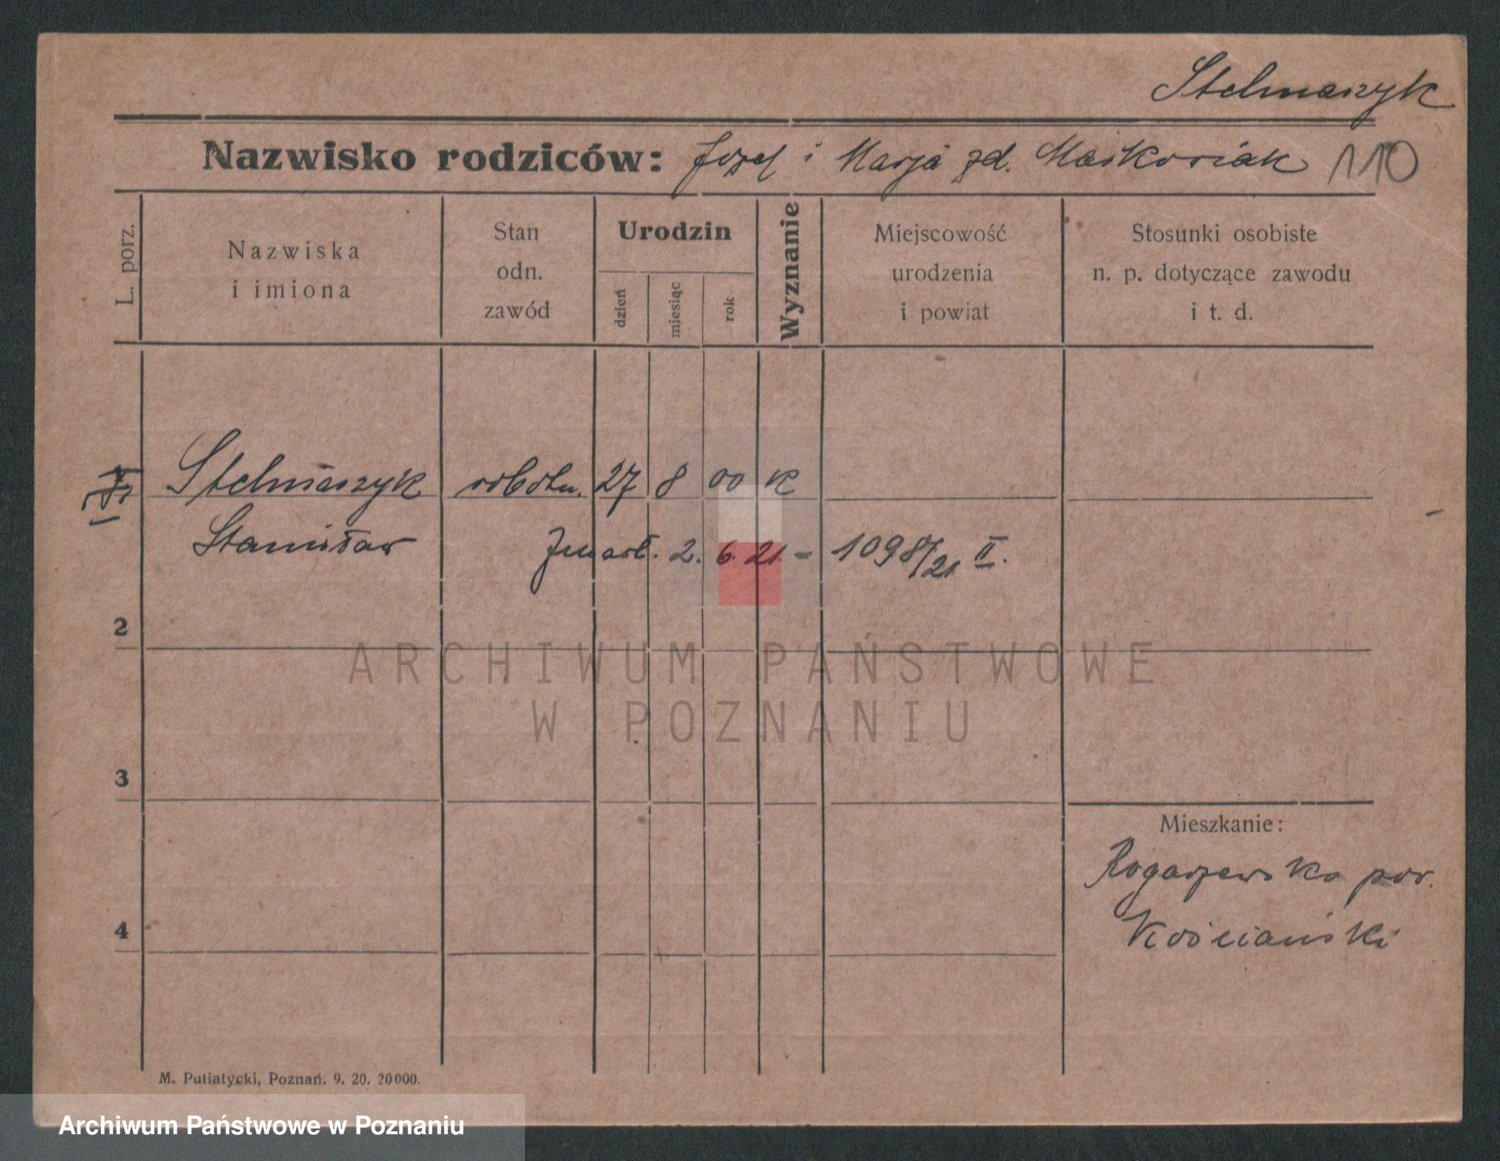 Stelmaszyk
Nazwisko rodziców: Józef i Marja zd. Maśkowiak 110
L. porz.
Nazwiska
i imiona
Stan
odn.
zawód
Urodzin
dzień
miesiąc
rok
Wyznanie
Miejscowość
urodzenia
i powiat
Stosunki osobiste
n. p. dotyczące zawodu
i t. d.
Stelmaszyk robotn. 27 8 00 K
Stanisław Zmarł. 2. 6. 21. - 1098/21 II.
2
ARCHIWUM PAŃSTWOWE
W POZNANIU
3
Mieszkanie:
Rogaszewsko pow.
Kościański
4
M. Putiatycki, Poznań. 9. 20. 20000.
Archiwum Państwowe w Poznaniu